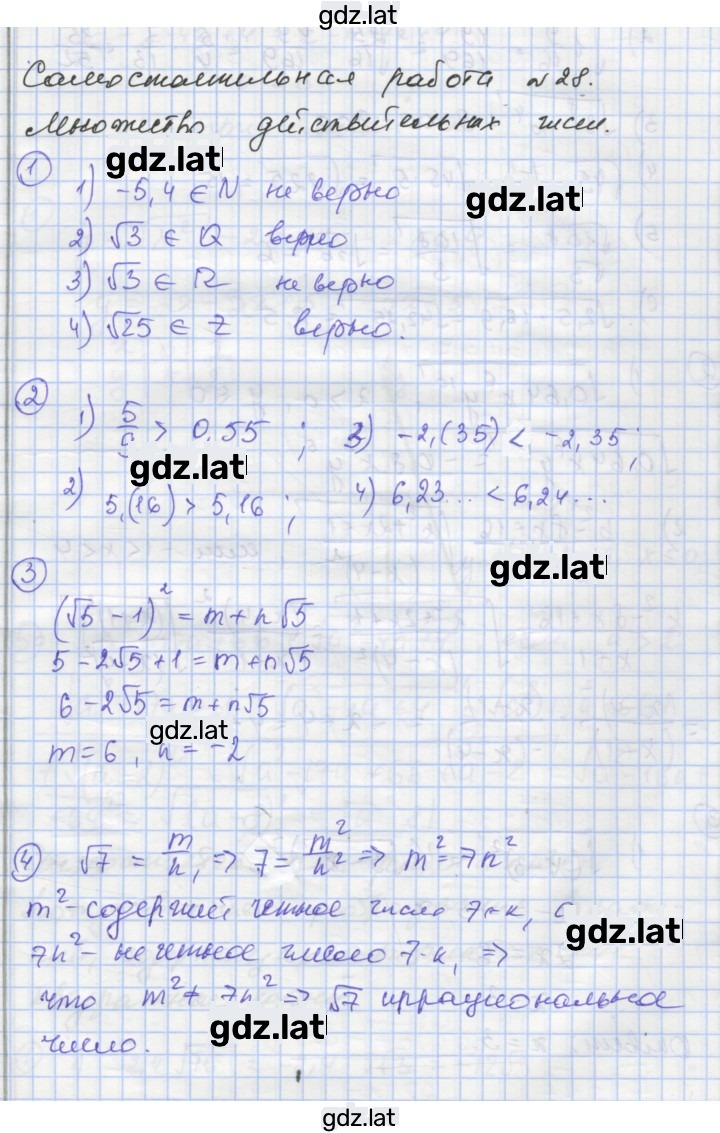 gdz.lat
Самостоятельная работа №28.
Множество действительных чисел.
gdz.lat
① 1) -5,4 ∈ N не верно
gdz.lat
2) √3 ∈ Q верно
3) √3 ∈ R не верно
4) √25 ∈ Z верно.
② 1) 5/9 > 0.55 ; 3) -2,(35) < -2,35;
gdz.lat
2) 5,(16) > 5,16 ; 4) 6,23... < 6,24...
gdz.lat
③
(√5 - 1)² = m + n√5
5 - 2√5 + 1 = m + n√5
6 - 2√5 = m + n√5
gdz.lat
m = 6 , n = -2
④ √7 = m/n, => 7 = m²/n² => m² = 7n²
m² - содержит четное число 7-к, с
gdz.lat
7n² - не четное число 7-к, =>
что m² ≠ 7n² => √7 иррациональное
gdz.lat
число.
gdz.lat